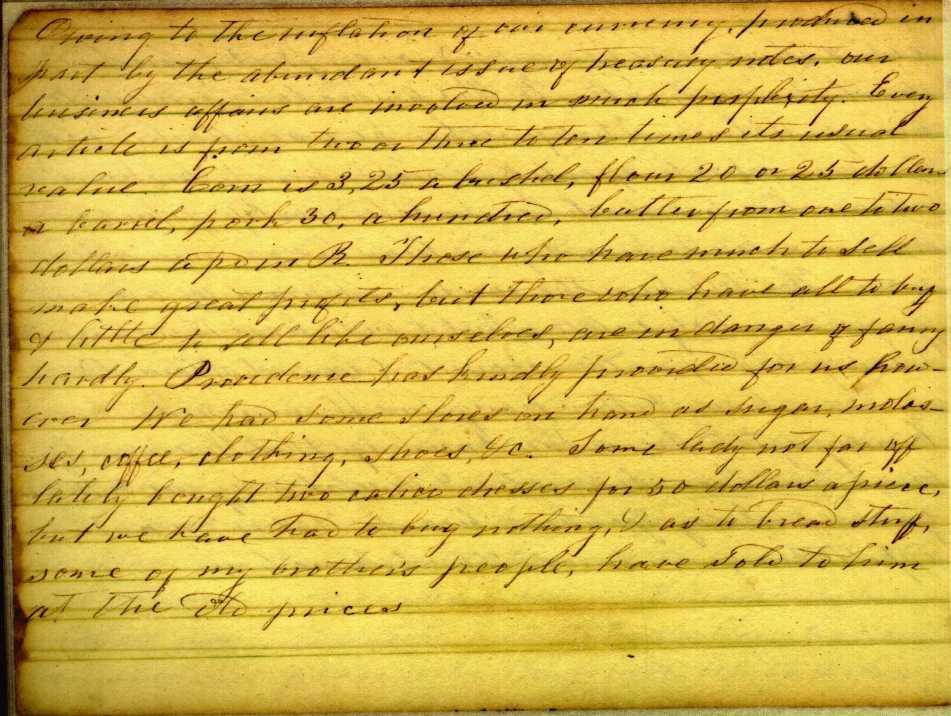 Owing to the inflation of our currency, produced in
part by the abundant issue of treasury notes, our
business affairs are involved in much perplexity. Every
article is from two or three to ten times its usual
value. Corn is 3,25 a bushel, flour 20 or 25 dollars
a barrel, pork 30, a hundred, butter from one to two
dollars a pound. Those who have much to sell
make great profits, but those who have all to buy
& little to sell like ourselves, are in danger of faring
hardly. Providence has kindly provided for us how-
ever. We had some stores on hand as sugar, molas-
ses, coffee, clothing, shoes, &c. Some lady not far off
lately bought two calico dresses for 50 dollars apiece,
but we have had to buy nothing, & as to bread stuff,
some of my brother's people, have sold to him
at the old prices